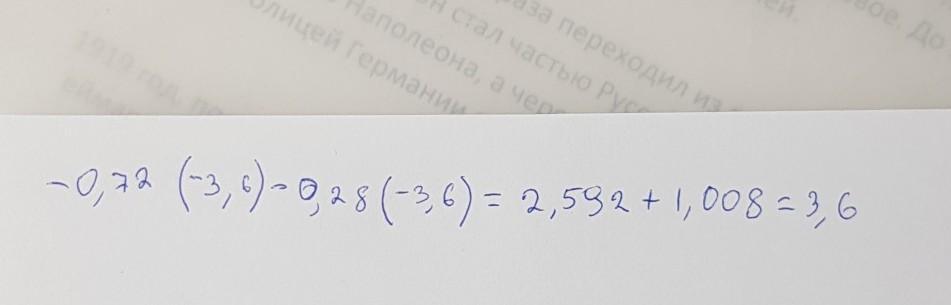 раза переходил из
он стал частью Русс
Наполеона, а чере
олицей Германии
1919 год, по
-0,72 (-3,6) - 0,28 (-3,6) = 2,592 + 1,008 = 3,6